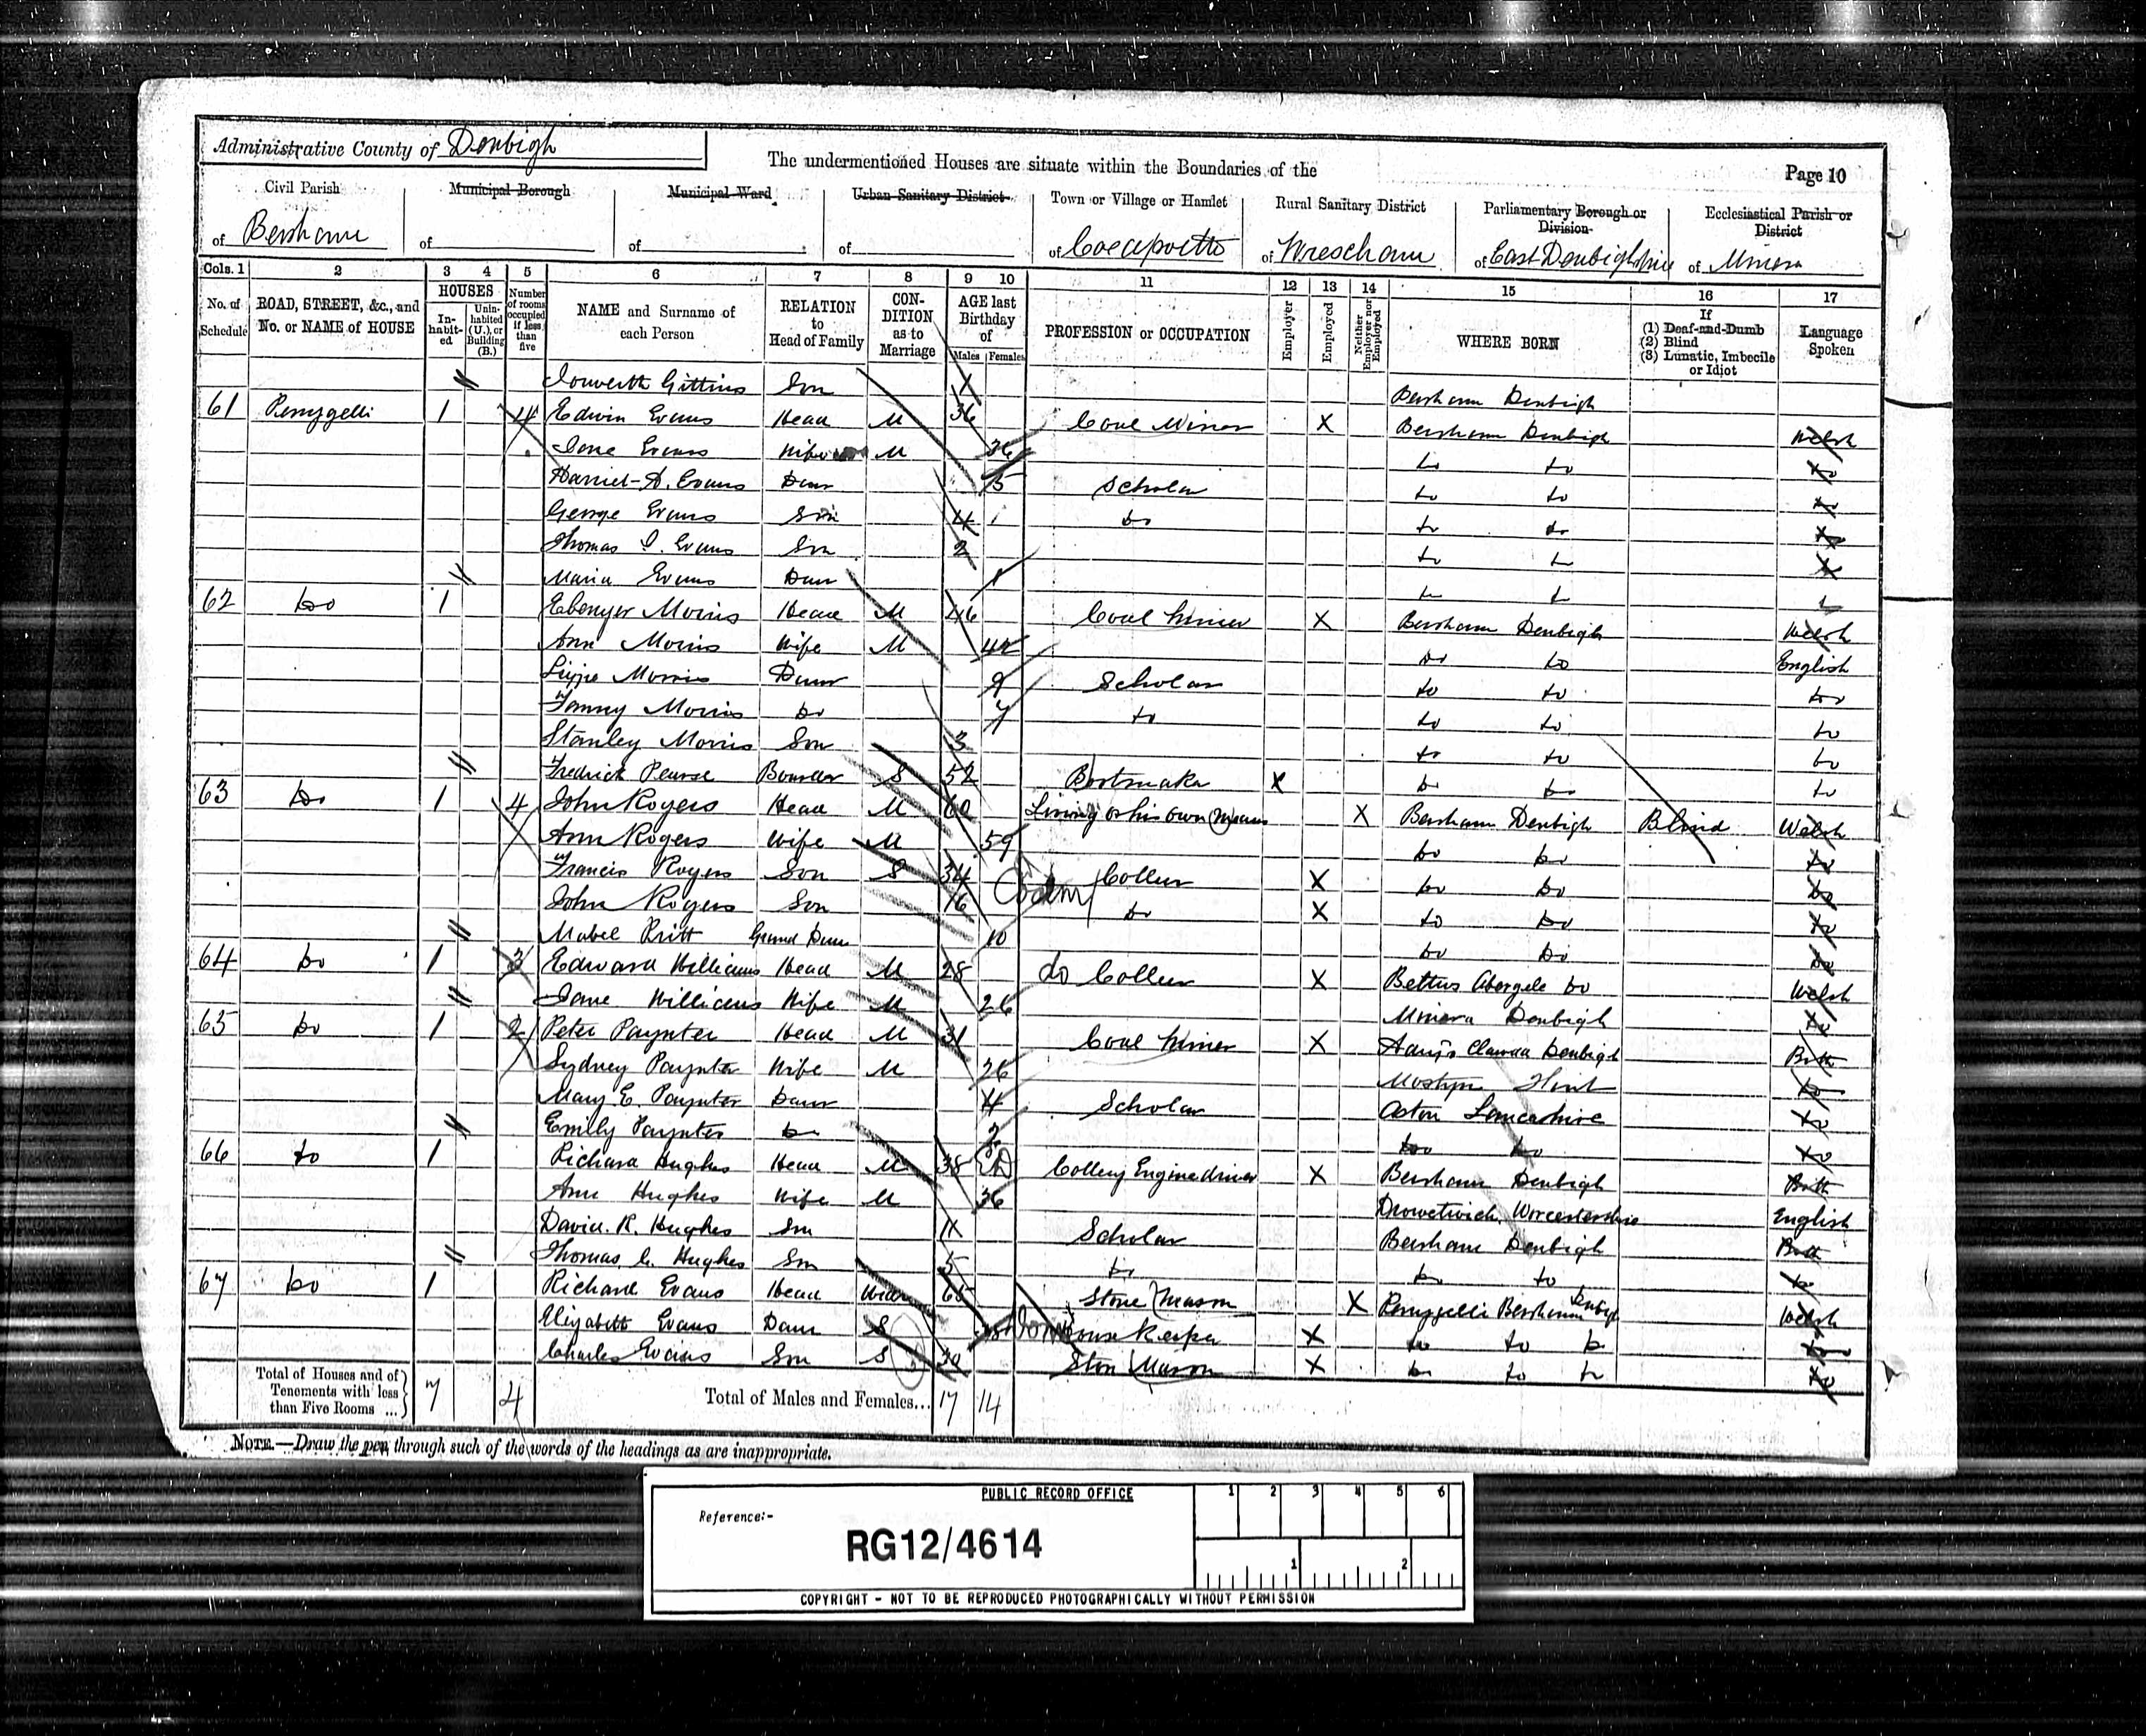 Administrative County of Denbigh
The undermentioned Houses are situate within the Boundaries of the
Page 10
Civil Parish of Bersham
Municipal Borough of
Municipal Ward of
Urban Sanitary District of
Town or Village or Hamlet of
Rural Sanitary District of Wrexham
Parliamentary Borough or Division of East Denbighshire
Ecclesiastical Parish or District of Minera
Cols. 1 2 3 4 5 6 7 8 9 10 11 12 13 14 15 16 17
No. of Schedule
ROAD, STREET, &c., and No. or NAME of HOUSE
HOUSES
In-habit-ed
Unin-habited (U.), or Building (B.)
Number of rooms occupied if less than five
NAME and Surname of each Person
RELATION to Head of Family
CON-DITION as to Marriage
AGE last Birthday of
Males Females
PROFESSION or OCCUPATION
Employer
Employed
Neither Employer nor Employed
WHERE BORN
If
(1) Deaf-and-Dumb
(2) Blind
(3) Lunatic, Imbecile or Idiot
Language Spoken
Iorwerth Gittins Son Bersham Denbigh
61 Penygelli 1 4 Edwin Evans Head M 36 Coal Miner X Bersham Denbigh Welsh
Jane Evans Wife M 36 do do do
Harriet A. Evans Daur 5 Scholar do do do
George Evans Son 4 do do do do
Thomas Evans Son 2 do do do
Maria Evans Daur 1 do do
62 Do 1 Ebenezer Morris Head M 46 Coal Miner X Bersham Denbigh Welsh
Ann Morris Wife M 42 do do English
Lizzie Morris Daur 9 Scholar do do do
Fanny Morris do 7 do do do do
Stanley Morris Son 3 do do do
Fredrick Pearse Boarder S 52 Bootmaker X do do do
63 Do 1 4 John Rogers Head M 60 Living on his own Means X Bersham Denbigh Blind Welsh
Ann Rogers Wife M 59 do do do
Francis Rogers Son S 34 Collier X do do do
John Rogers Son 16 do X do do do
Mabel Pritt Grand Daur 10 do do do
64 Do 1 3 Edward Williams Head M 28 do Collier X Bettws Abergele do Welsh
Jane Williams Wife M 26 Minera Denbigh do
65 Do 1 2 Peter Paynter Head M 31 Coal Miner X Denbigh Both
Sydney Paynter Wife M 26 Mostyn Flint do
Mary E. Paynter Daur 4 Scholar Aston Lancashire do
Emily Paynter do 2 do do do
66 do 1 Richard Hughes Head M 38 Colliery Engine driver X Bersham Denbigh Both
Ann Hughes Wife M 36 Worcestershire English
David. R. Hughes Son Scholar Bersham Denbigh Both
Thomas Hughes Son 5 do do do do
67 Do 1 Richard Evans Head 65 Stone Mason X Penygelli Bersham Denbigh Welsh
Elizabeth Evans Daur S House Keeper X do do do
Charles Evans Son S 30 Ston Mason X do do do do
Total of Houses and of Tenements with less than Five Rooms ... 7 4
Total of Males and Females... 17 14
NOTE.—Draw the pen through such of the words of the headings as are inappropriate.
PUBLIC RECORD OFFICE
1 2 3 4 5 6
Reference:-
RG12/4614
1 2
COPYRIGHT - NOT TO BE REPRODUCED PHOTOGRAPHICALLY WITHOUT PERMISSION